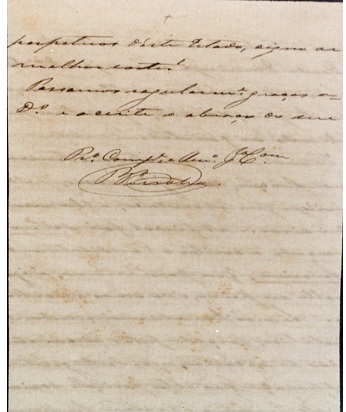 perpetuos d'este Estado, digno de
melhor sorte!
Passamos regularm.e graças a
D.s e aceite o abraço do seu
Pr.o Comp.e e Am.o